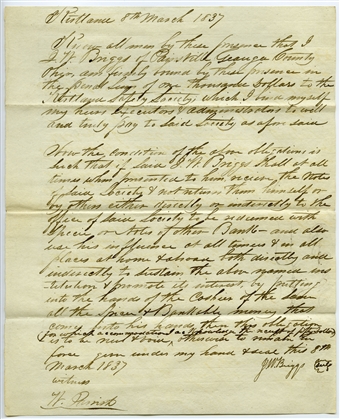 Kirtland 8th March 1837
Know all men by these presence that I
J. W. Briggs of Geauga County
Ohio am firmly bound by these presence in
the Penal Sum of one thousand Dollars to the
Kirtland Safety Society which I bind myself
my heirs executors & administrators to well
and truly pay to said Society as afore said
Now the condition of the above obligation is
such that if said J W Briggs shall at all
times when presented to him receive the Notes
of said Society & not return them himself or
by others either directly or indirectly to the
office of said Society to be redeemed with
Specie or Notes of other Banks and also
use his influence at all times & in all
places at home & abroad both directly and
indirectly to sustain the above named in
stitution & promote its interest, by putting
into the hands of the Cashier of the same
all the Specie & Bankable money that
comes into his hands then this obligation
is to be null & void, otherwise to remain in
force given under my hand & seal this 8th
March 1837 J W Briggs
witness